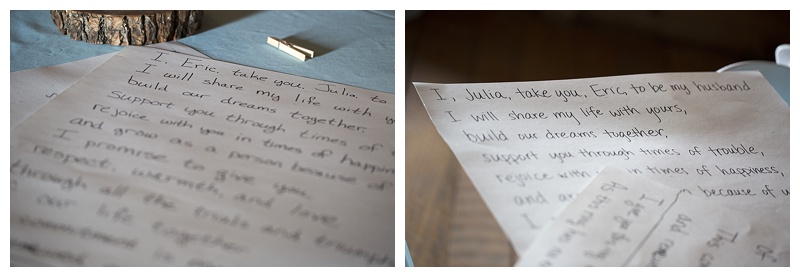 I, Eric, take you, Julia, to
I will share my life with y
build our dreams together,
support you through times of
rejoice with you in times of happin
and grow as a person because of
I promise to give you
respect, warmth, and love
through all the trials and triumphs
our life together
commitment is
I, Julia, take you, Eric, to be my husband
I will share my life with yours,
build our dreams together,
support you through times of trouble,
rejoice with in times of happiness,
and because of u
I